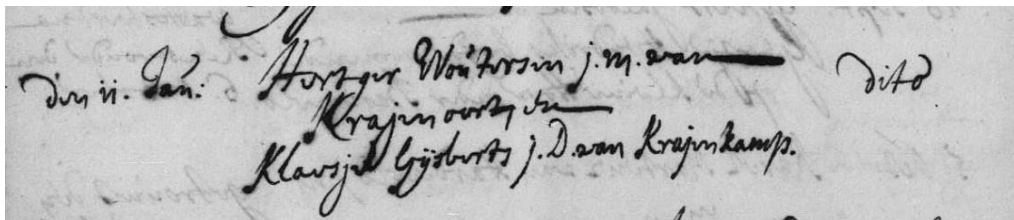 den 11. Jan: Hertger Woutersen j.m. van dito
Krajinoort, en
Klaasje Gijsberts j.D. van Krajinkamp.